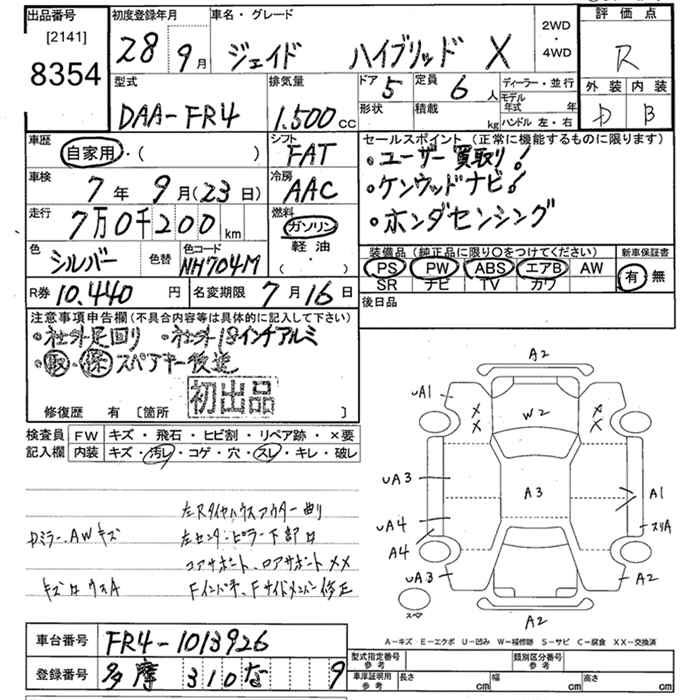 出品番号
[2141]
8354
初度登録年月
28 9月
車名・グレード
ジェイド ハイブリッド X
2WD
・
4WD
評価点
R
外装 内装
D B
型式
DAA-FR4
排気量
1.500cc
ドア
5
定員
6人
形状
積載
kg
ディーラー・並行
モデル年式 年
ハンドル 左・右
車歴
自家用・( )
シフト
FAT
車検
7年 9月(23日)
冷房
AAC
走行
7万0千200km
燃料
ガソリン
軽油
( ・ )
色
シルバー
色替
色コード
NH704M
R券 10.440円
名変期限 7月16日
セールスポイント (正常に機能するものに限ります)
・ユーザー買取り!
・ケンウッドナビ!
・ホンダセンシング
装備品 (純正品に限り○をつけてください)
新車保証書
PS PW ABS エアB AW
SR ナビ TV カワ
有・無
後日品
注意事項申告欄(不具合内容等は具体的に記入して下さい)
・社外足回り ・社外18インチアルミ
・取・保 スペアキー後送
初出品
修復歴 有 [箇所 ]
検査員記入欄
FW キズ・飛石・ヒビ割・リペア跡・×要
内装 キズ・汚レ・コゲ・穴・スレ・キレ・破レ
Dミラー、AWキズ
左センターピラー下部
コアサポート、ロアサポートXX
Fインパネ、Fサイドメンバー修正
A2
UA1
X
X
W2
X
X
UA3
A3
A1
UA4
A4
スリA
UA3
A2
スペア
A2
A-キズ E-エクボ U-凹み W-補修跡 S-サビ C-腐食 XX-交換済
車台番号 FR4-1013926
登録番号 多摩 310 な 9
型式指定番号
参考
類別区分番号
参考
車庫証明用
参考
長さ cm
幅 cm
高さ cm